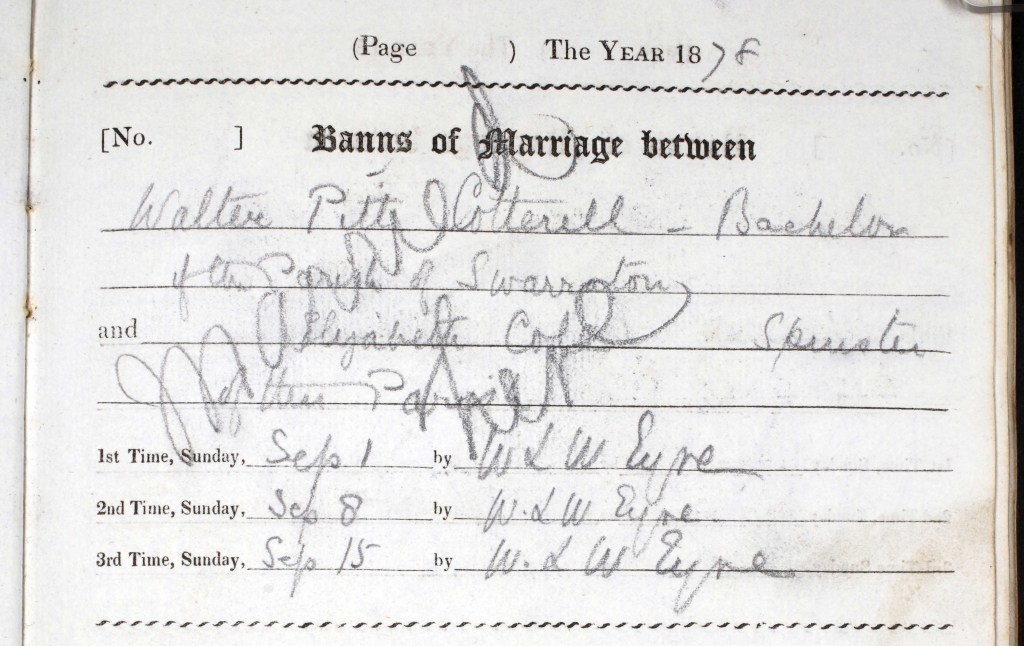 (Page ) The YEAR 1878
[No. ] Banns of Marriage between
Walter Pitts Cotterell - Bachelor
of the Parish of Swarraton
and Elizabeth Spinster
of this Parish
1st Time, Sunday, Sep 1 by W L W Eyre
2nd Time, Sunday, Sep 8 by W. L W Eyre.
3rd Time, Sunday, Sep 15 by W. L W Eyre